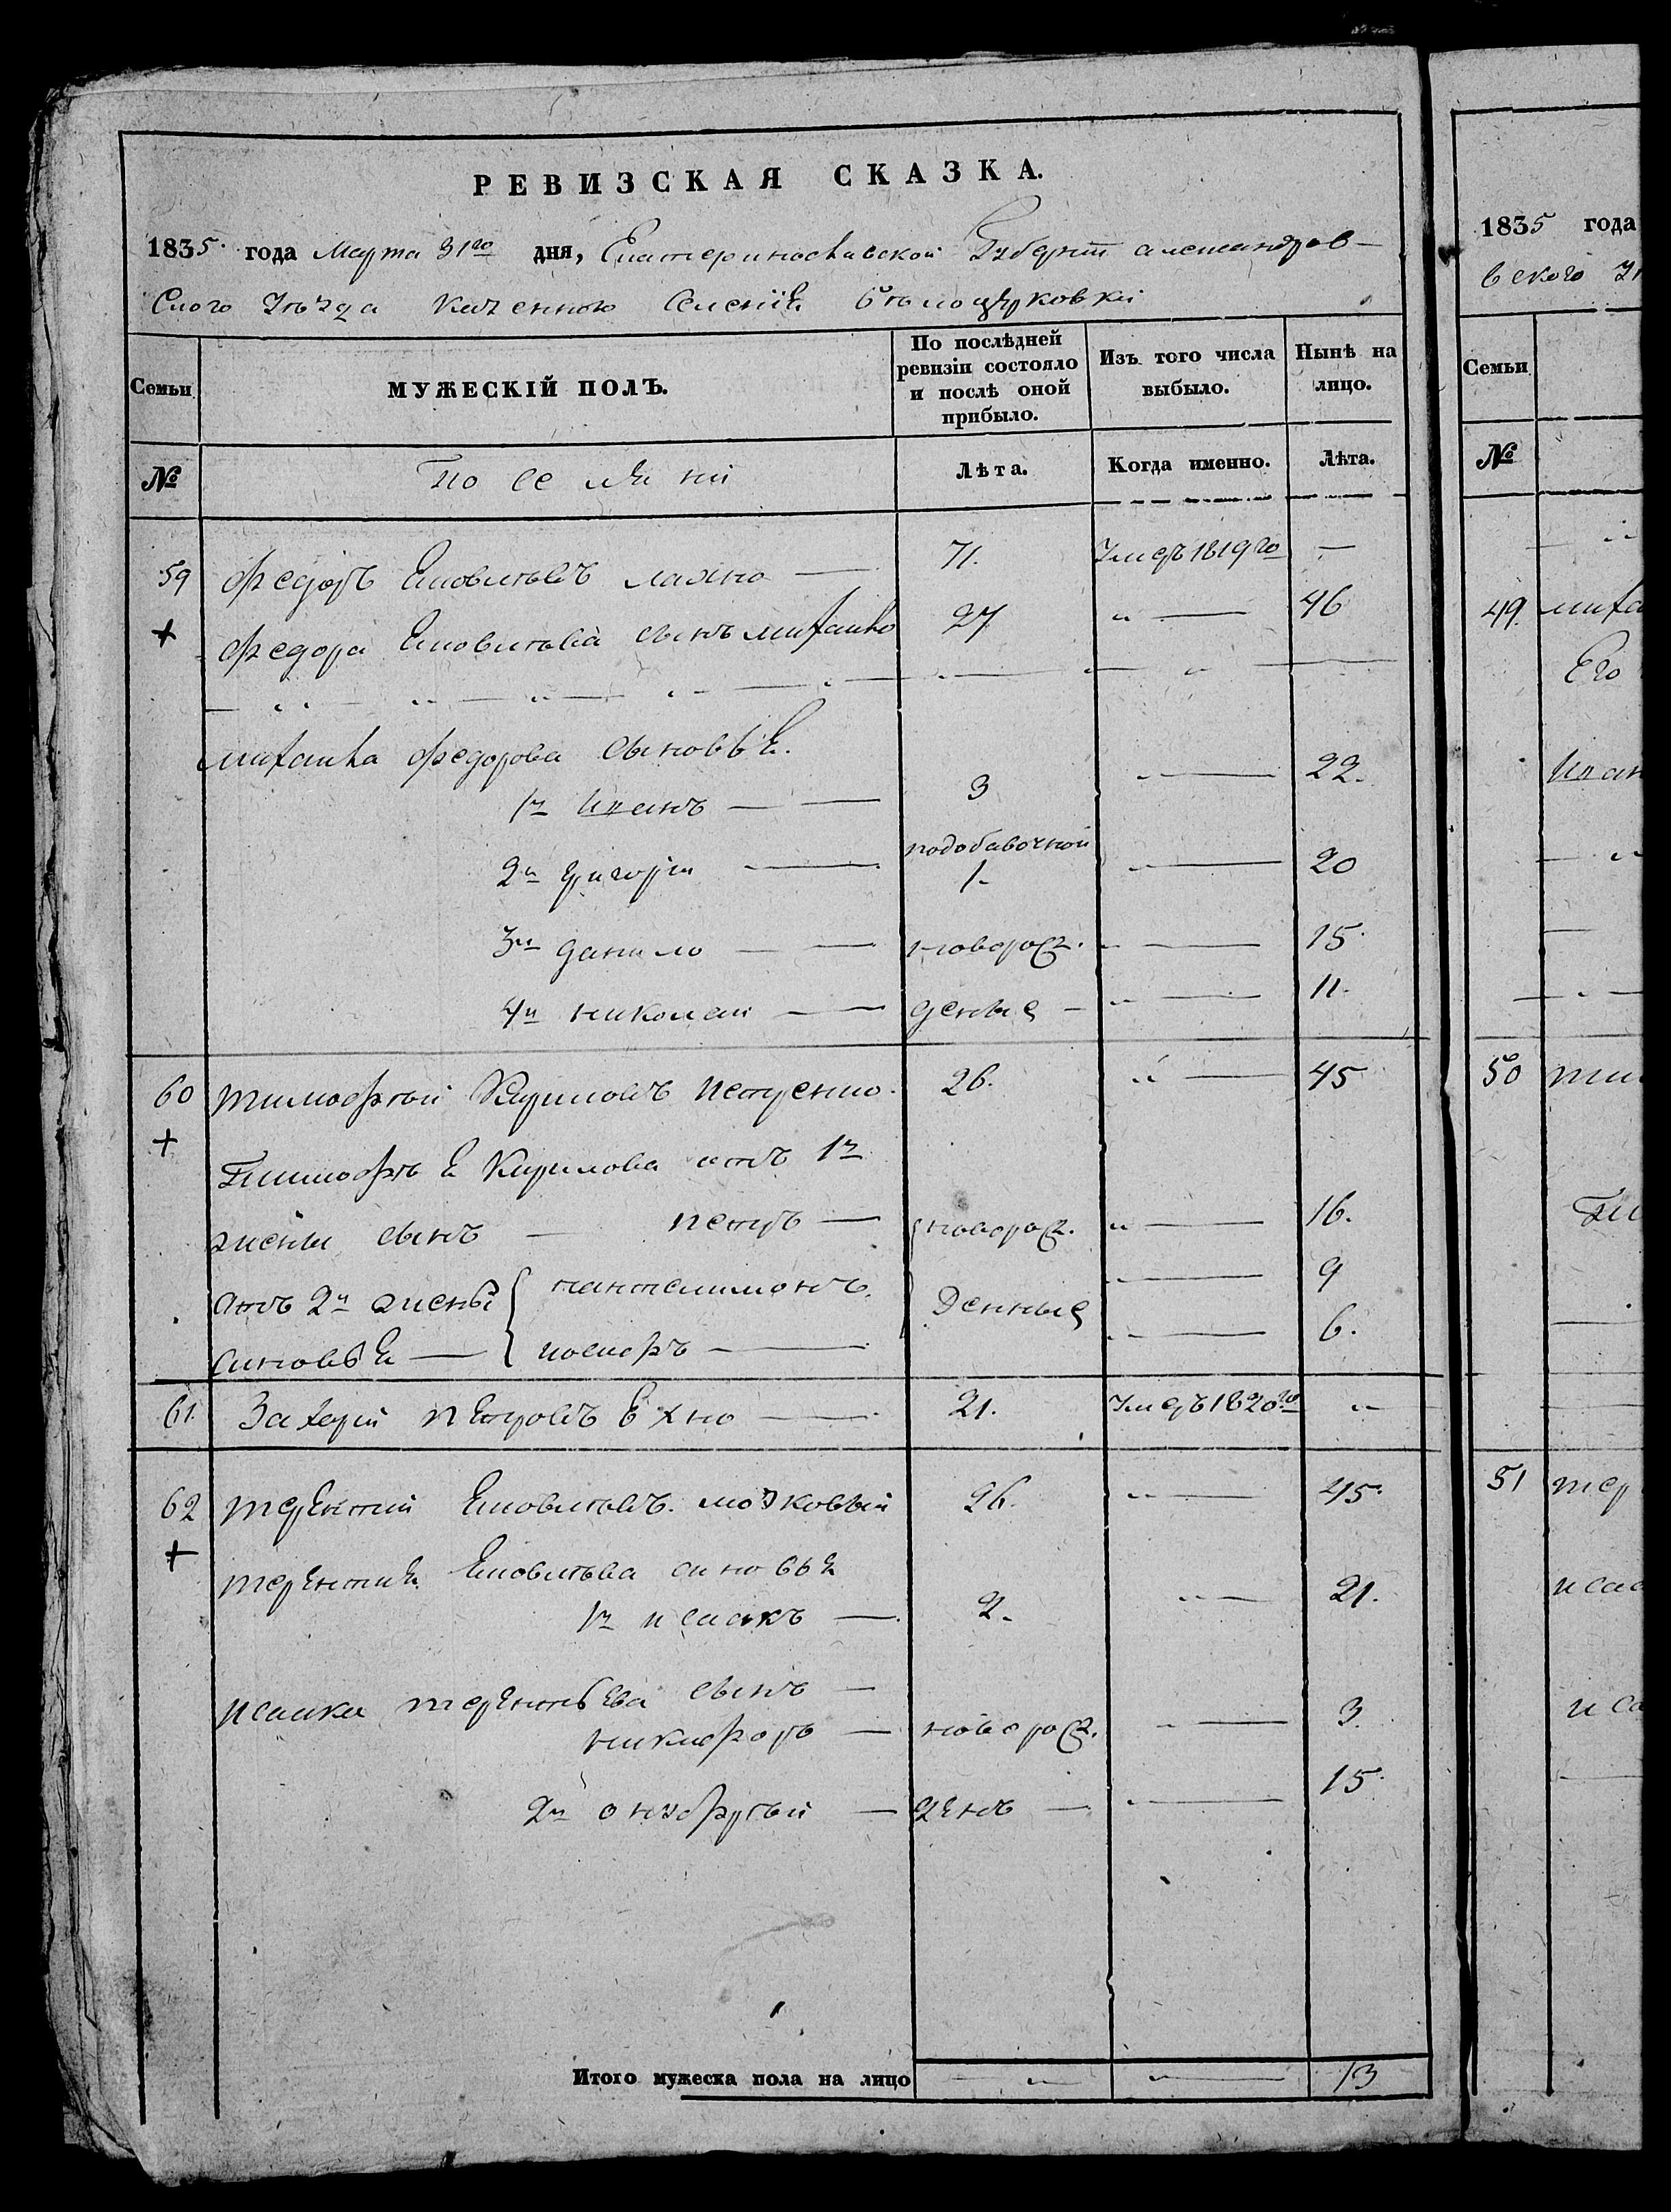 РЕВИЗСКАЯ СКАЗКА.
1835. года Марта 31го дня, Екатеринославской Губерніи александров-
Скаго Уѣзда Казенного Селенія Бѣлоцерковки
Семьи
МУЖЕСКІЙ ПОЛЪ.
По послѣдней ревизіи состояло и послѣ оной прибыло.
Изъ того числа выбыло.
Нынѣ на лицо.
№
Поселяни
Лѣта.
Когда именно.
Лѣта.
59 федоръ Яковлѣвъ — 71. Умеръ 1819го —
федора Яковлѣва сынъ михаило 27 „ — 46
михаила федорова сыновья.
1й Иванъ — — 3 „ — 22.
2й григорій — подобавочной 1. „ — 20
3й данило — — новорож. „ — 15.
4й николай — денные — „ — 11.
60 тимофѣй Кириловъ петренко. 26. „ — 45
Тимофѣя Кирилова отъ 1й
жены сынъ — петръ — новорож. „ — 16.
отъ 2й жены пантелимонъ. Денные „ — 9
синовья — иосифъ — „ — 6.
61. Захарій петровъ — 21. Умеръ 1820го „
62 терентій Яковлѣвъ. 26. „ — 45.
терентия Яковлѣва синовья
1й исаакъ — 2. „ — 21.
исаака терентьева сынъ —
никифоръ — новорож. „ — 3.
2й онофрѣй — денъ — „ — 15.
Итого мужеска пола на лицо — „ — „ — 13
1835 года
Семьи
№
49.
Его
50
51